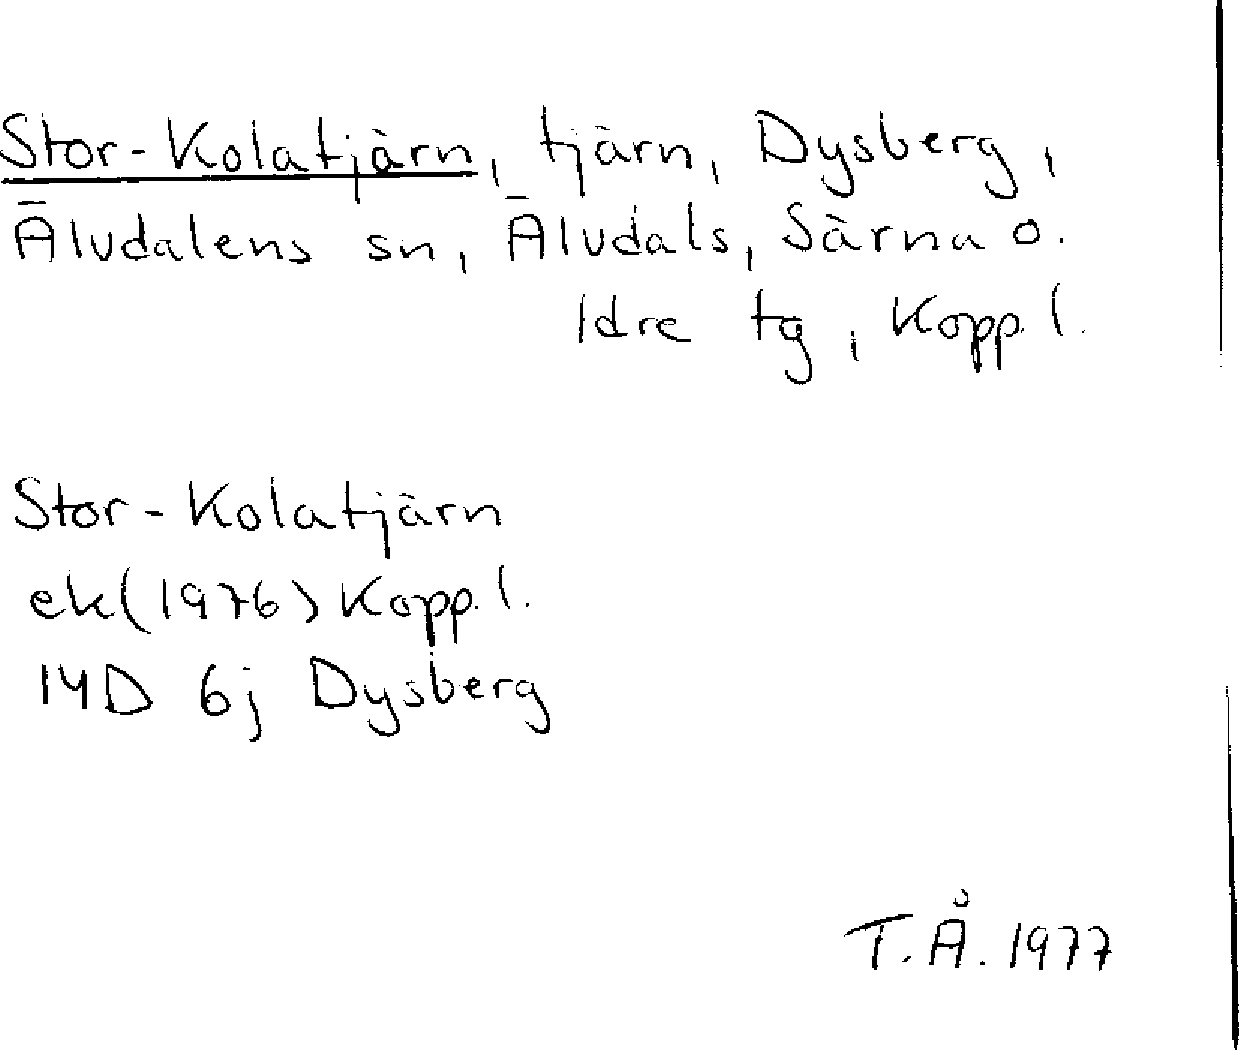 Stor-Kolatjärn, tjärn, Dysberg,
Älvdalens sn, Älvdals, Särna o.
Idre tg, Kopp.l.
Stor-Kolatjärn
ek(1976) Kopp.l.
14D 6j Dysberg
T.Å. 1977